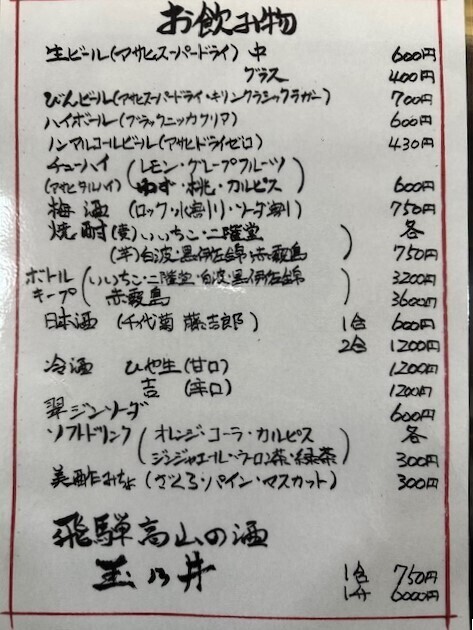 お飲み物
生ビール(アサヒスーパードライ) 中 600円
グラス 400円
びんビール(アサヒスーパードライ・キリンクラシックラガー) 700円
ハイボール(ブラックニッカクリア) 600円
ノンアルコールビール(アサヒドライゼロ) 430円
チューハイ(レモン・グレープフルーツ
(アサヒタルハイ) ゆず・桃・カルピス) 600円
梅酒 (ロック・水割り・ソーダ割り) 750円
焼酎 (麦)いいちこ・二階堂 各
(芋)白波・黒伊佐錦・赤霧島) 750円
ボトル (いいちこ・二階堂・白波・黒伊佐錦 3200円
キープ 赤霧島) 3600円
日本酒 (千代菊 藤吉郎) 1合 600円
2合 1200円
冷酒 ひや生(甘口) 1200円
吉 (辛口) 1200円
翠ジンソーダ 600円
ソフトドリンク(オレンジ・コーラ・カルピス 各
ジンジャエール・ウーロン茶・緑茶) 300円
美酢みちょ(ざくろ・パイン・マスカット) 300円
飛騨高山の酒
玉乃井 1合 750円
1升 6000円